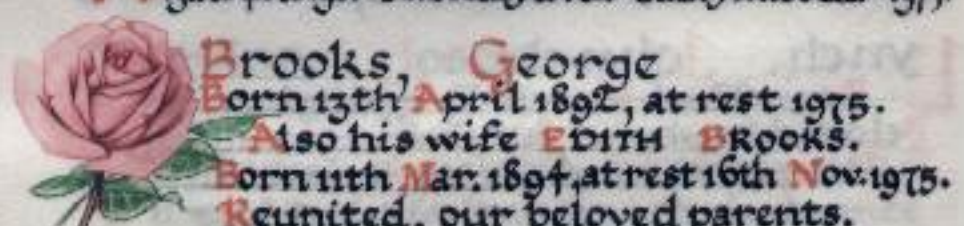 Brooks, George
Born 13th April 1892, at rest 1975.
Also his wife EDITH BROOKS.
Born 11th Mar. 1894, at rest 16th Nov. 1975.
Reunited, our beloved parents.